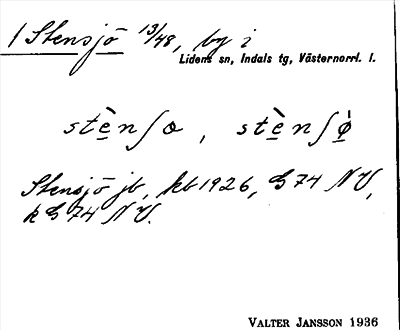 1 Stensjö 13/48, by i
Lidens sn, Indals tg, Västernorrl. l.
stè̱nʃɶ, stè̱nʃø̱̀
Stensjö jb, kb 1926, G 74 NV,
k G 74 NV.
VALTER JANSSON 1936